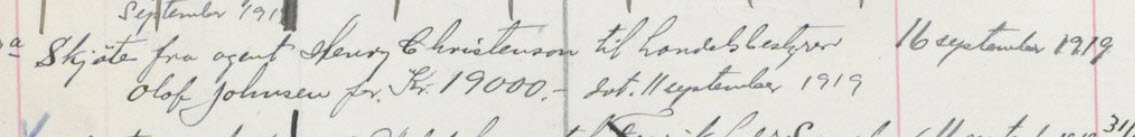 September 191
a Skjöte fra agent Henry Christenson til handelsbestyrer 16 september 1919
Olof Johnsen for. Kr. 19000.- dat. 11 september 1919